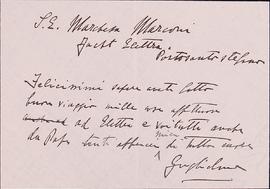 S. E. Marchesa Marconi
Yacht Elettra
Portosanto stefano
Felicissimi sapere avete fatto
buon viaggio mille cose affettuose
ad Elettra e voi tutti anche
da Papa tanti affanni di tutto cuore
miei
Guglielmo